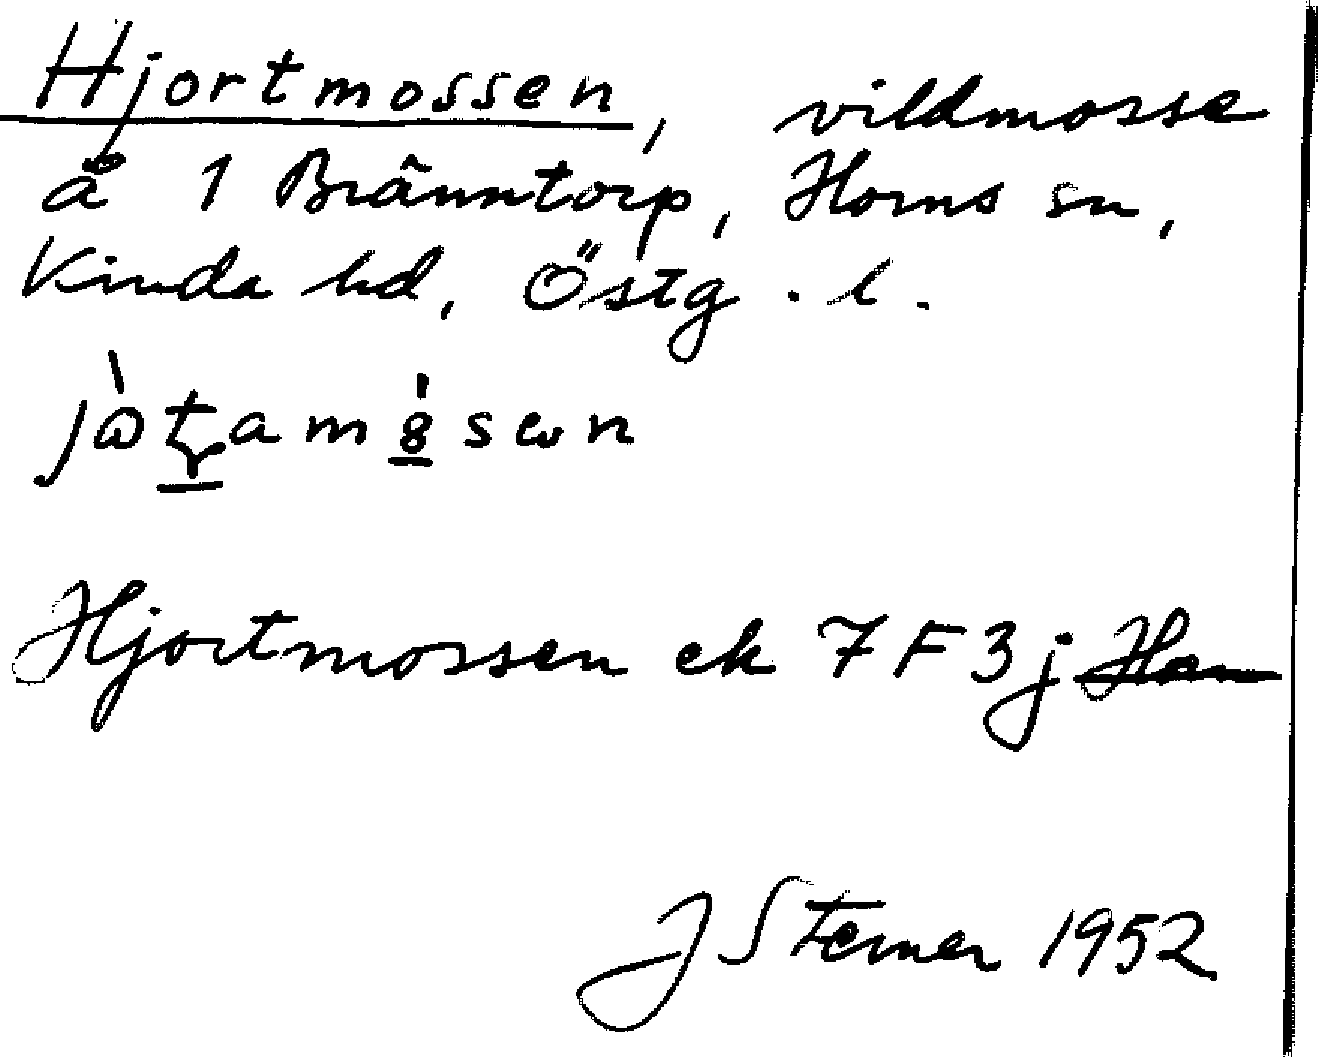 Hjortmossen, vildmosse
å 1 Bränntorp, Horns sn,
Kinda hd, Östg. l.
Hjortmossen ek 7F3j
J Sterner 1952